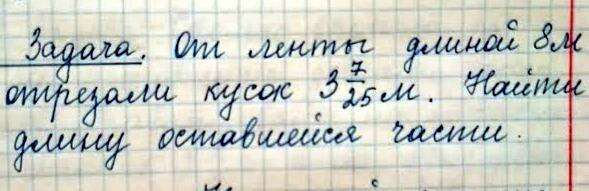 Задача. От ленты длиной 8м
отрезали кусок 3 7/25 м. Найти
длину оставшейся части.